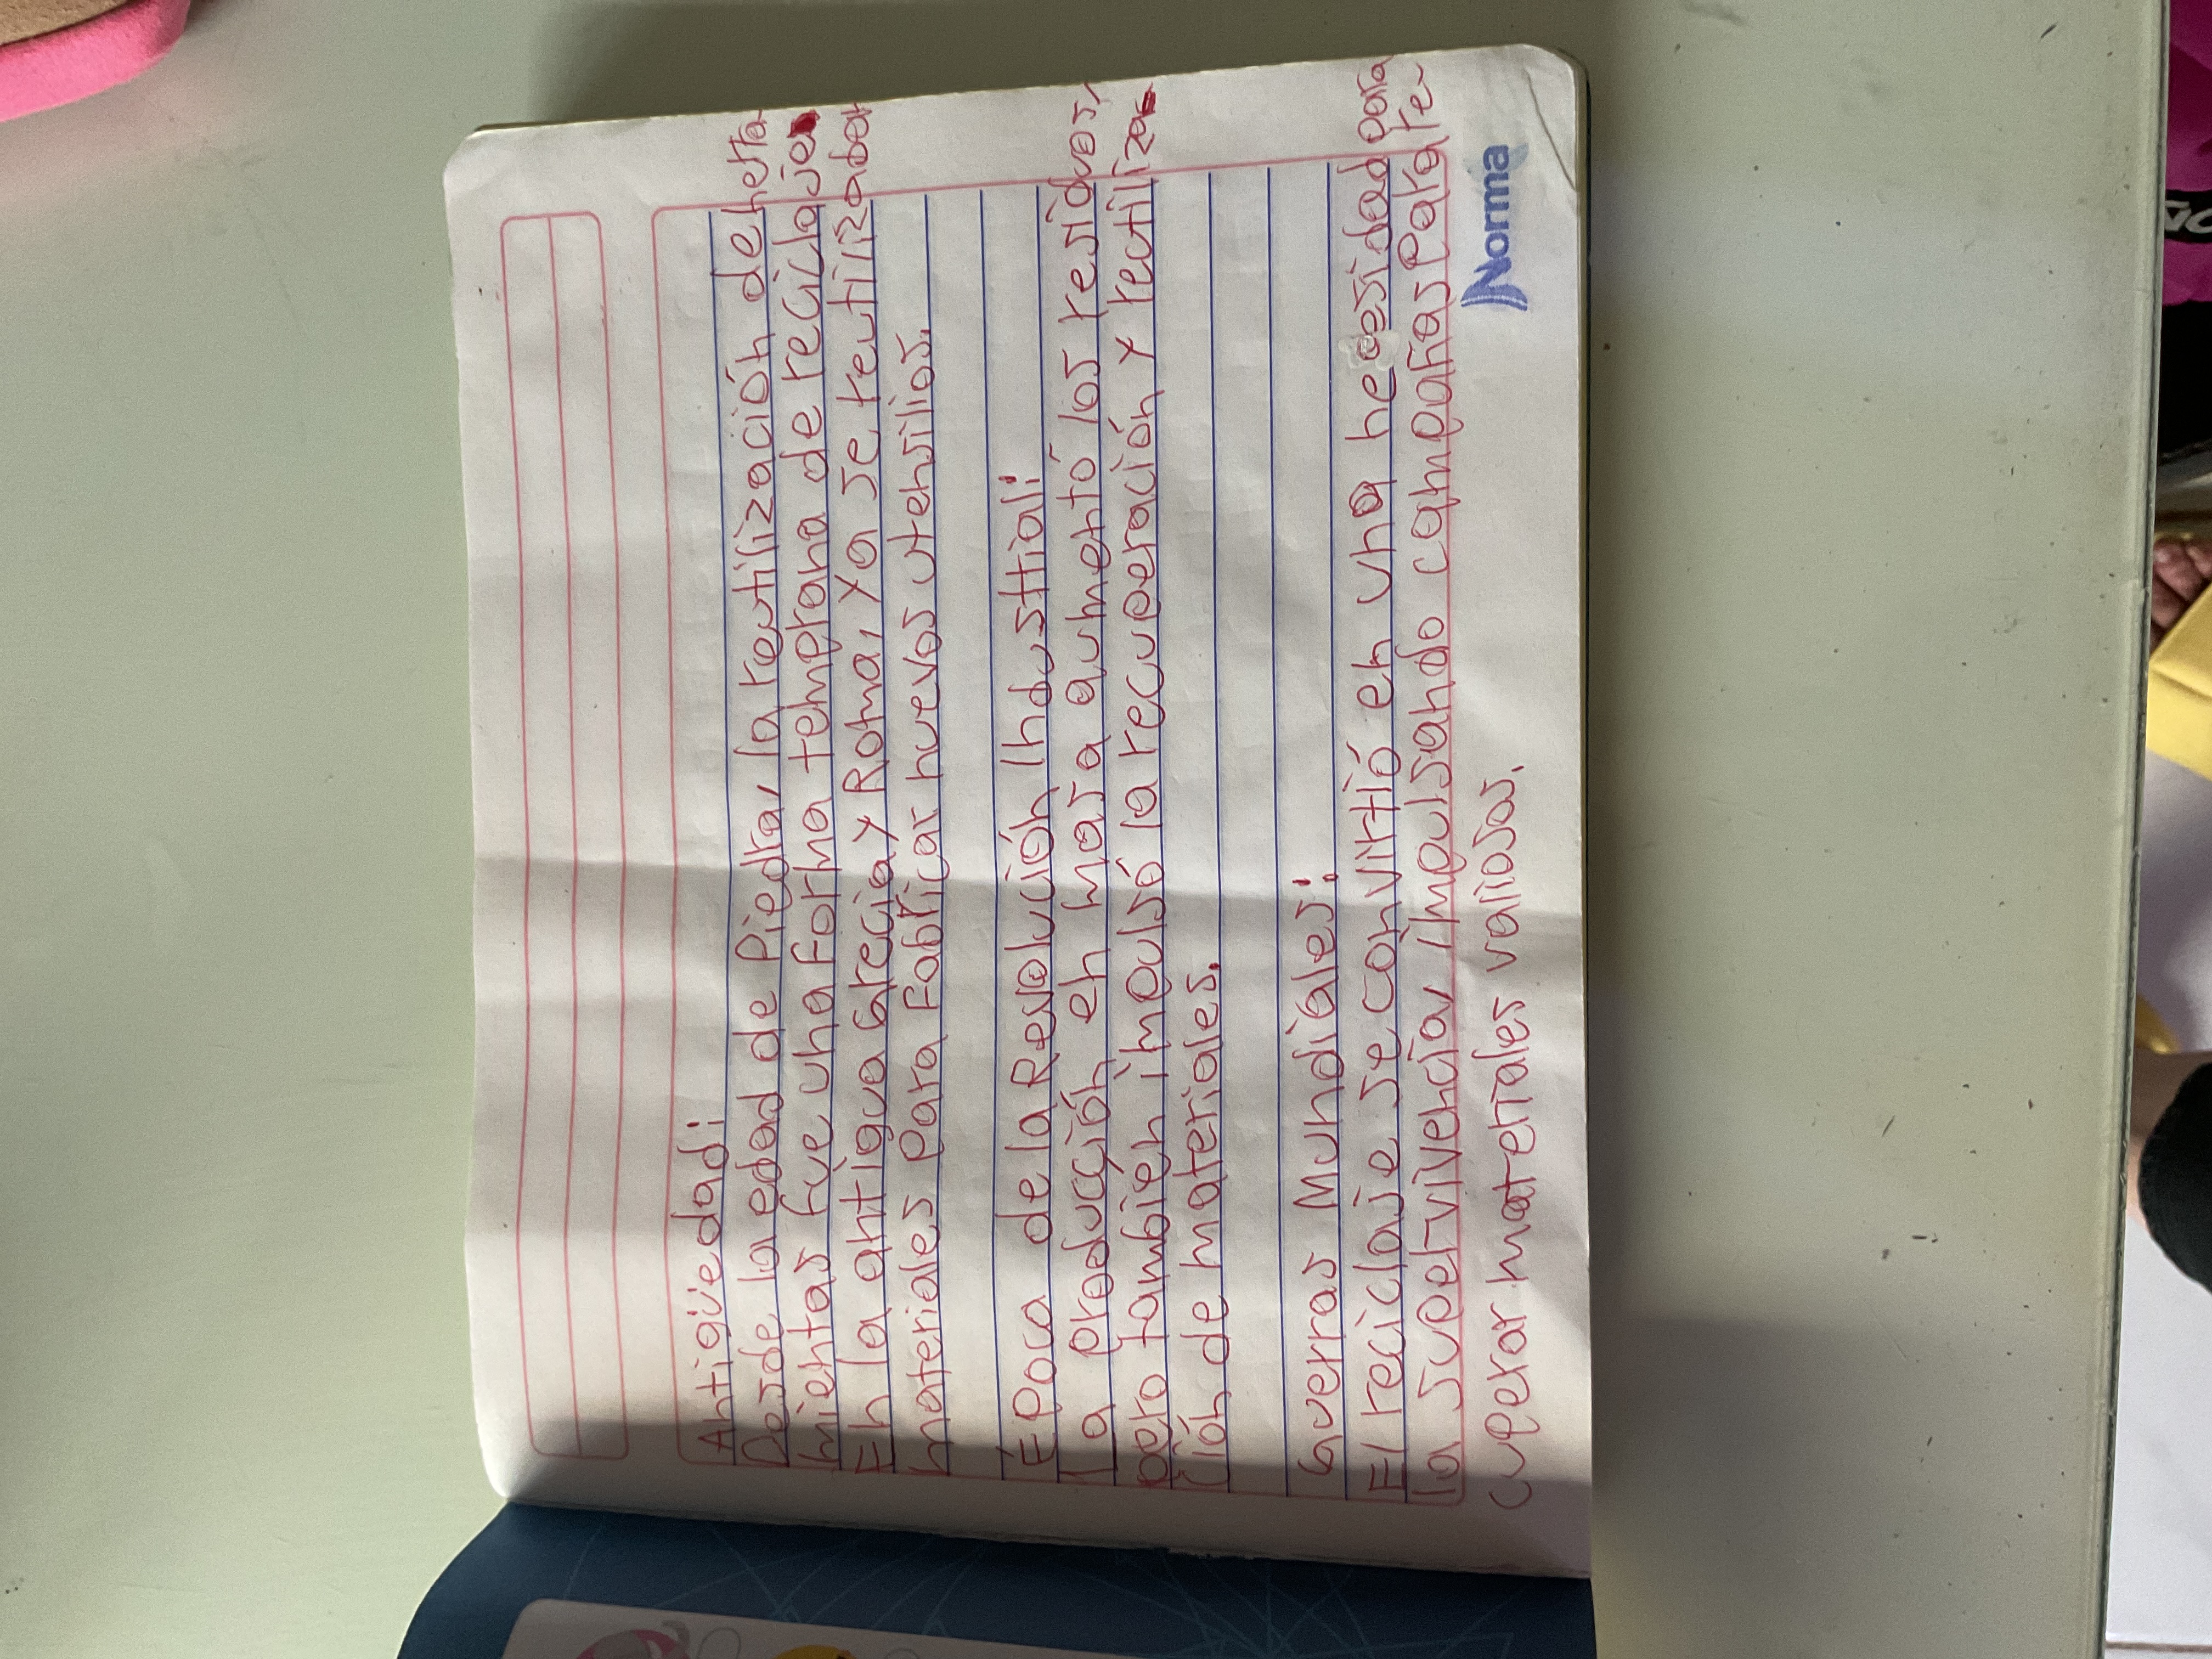 Antigüedad:
Desde la edad de Piedra, la reutilización de herra
mientas fue una forma temprana de reciclaje
En la antigua Grecia y Roma, ya se reutilizaban
materiales Para Fabricar nuevos utensilios.
Época de la Revolución Industrial:
La producción en masa aumentó los residuos,
pero también impulsó la recuperación y reutiliza
ción de materiales.
Guerras Mundiales:
El reciclaje se convirtió en una necesidad para
la supervivencia, impulsando campañas Para re
cuperar materiales valiosos.
Norma